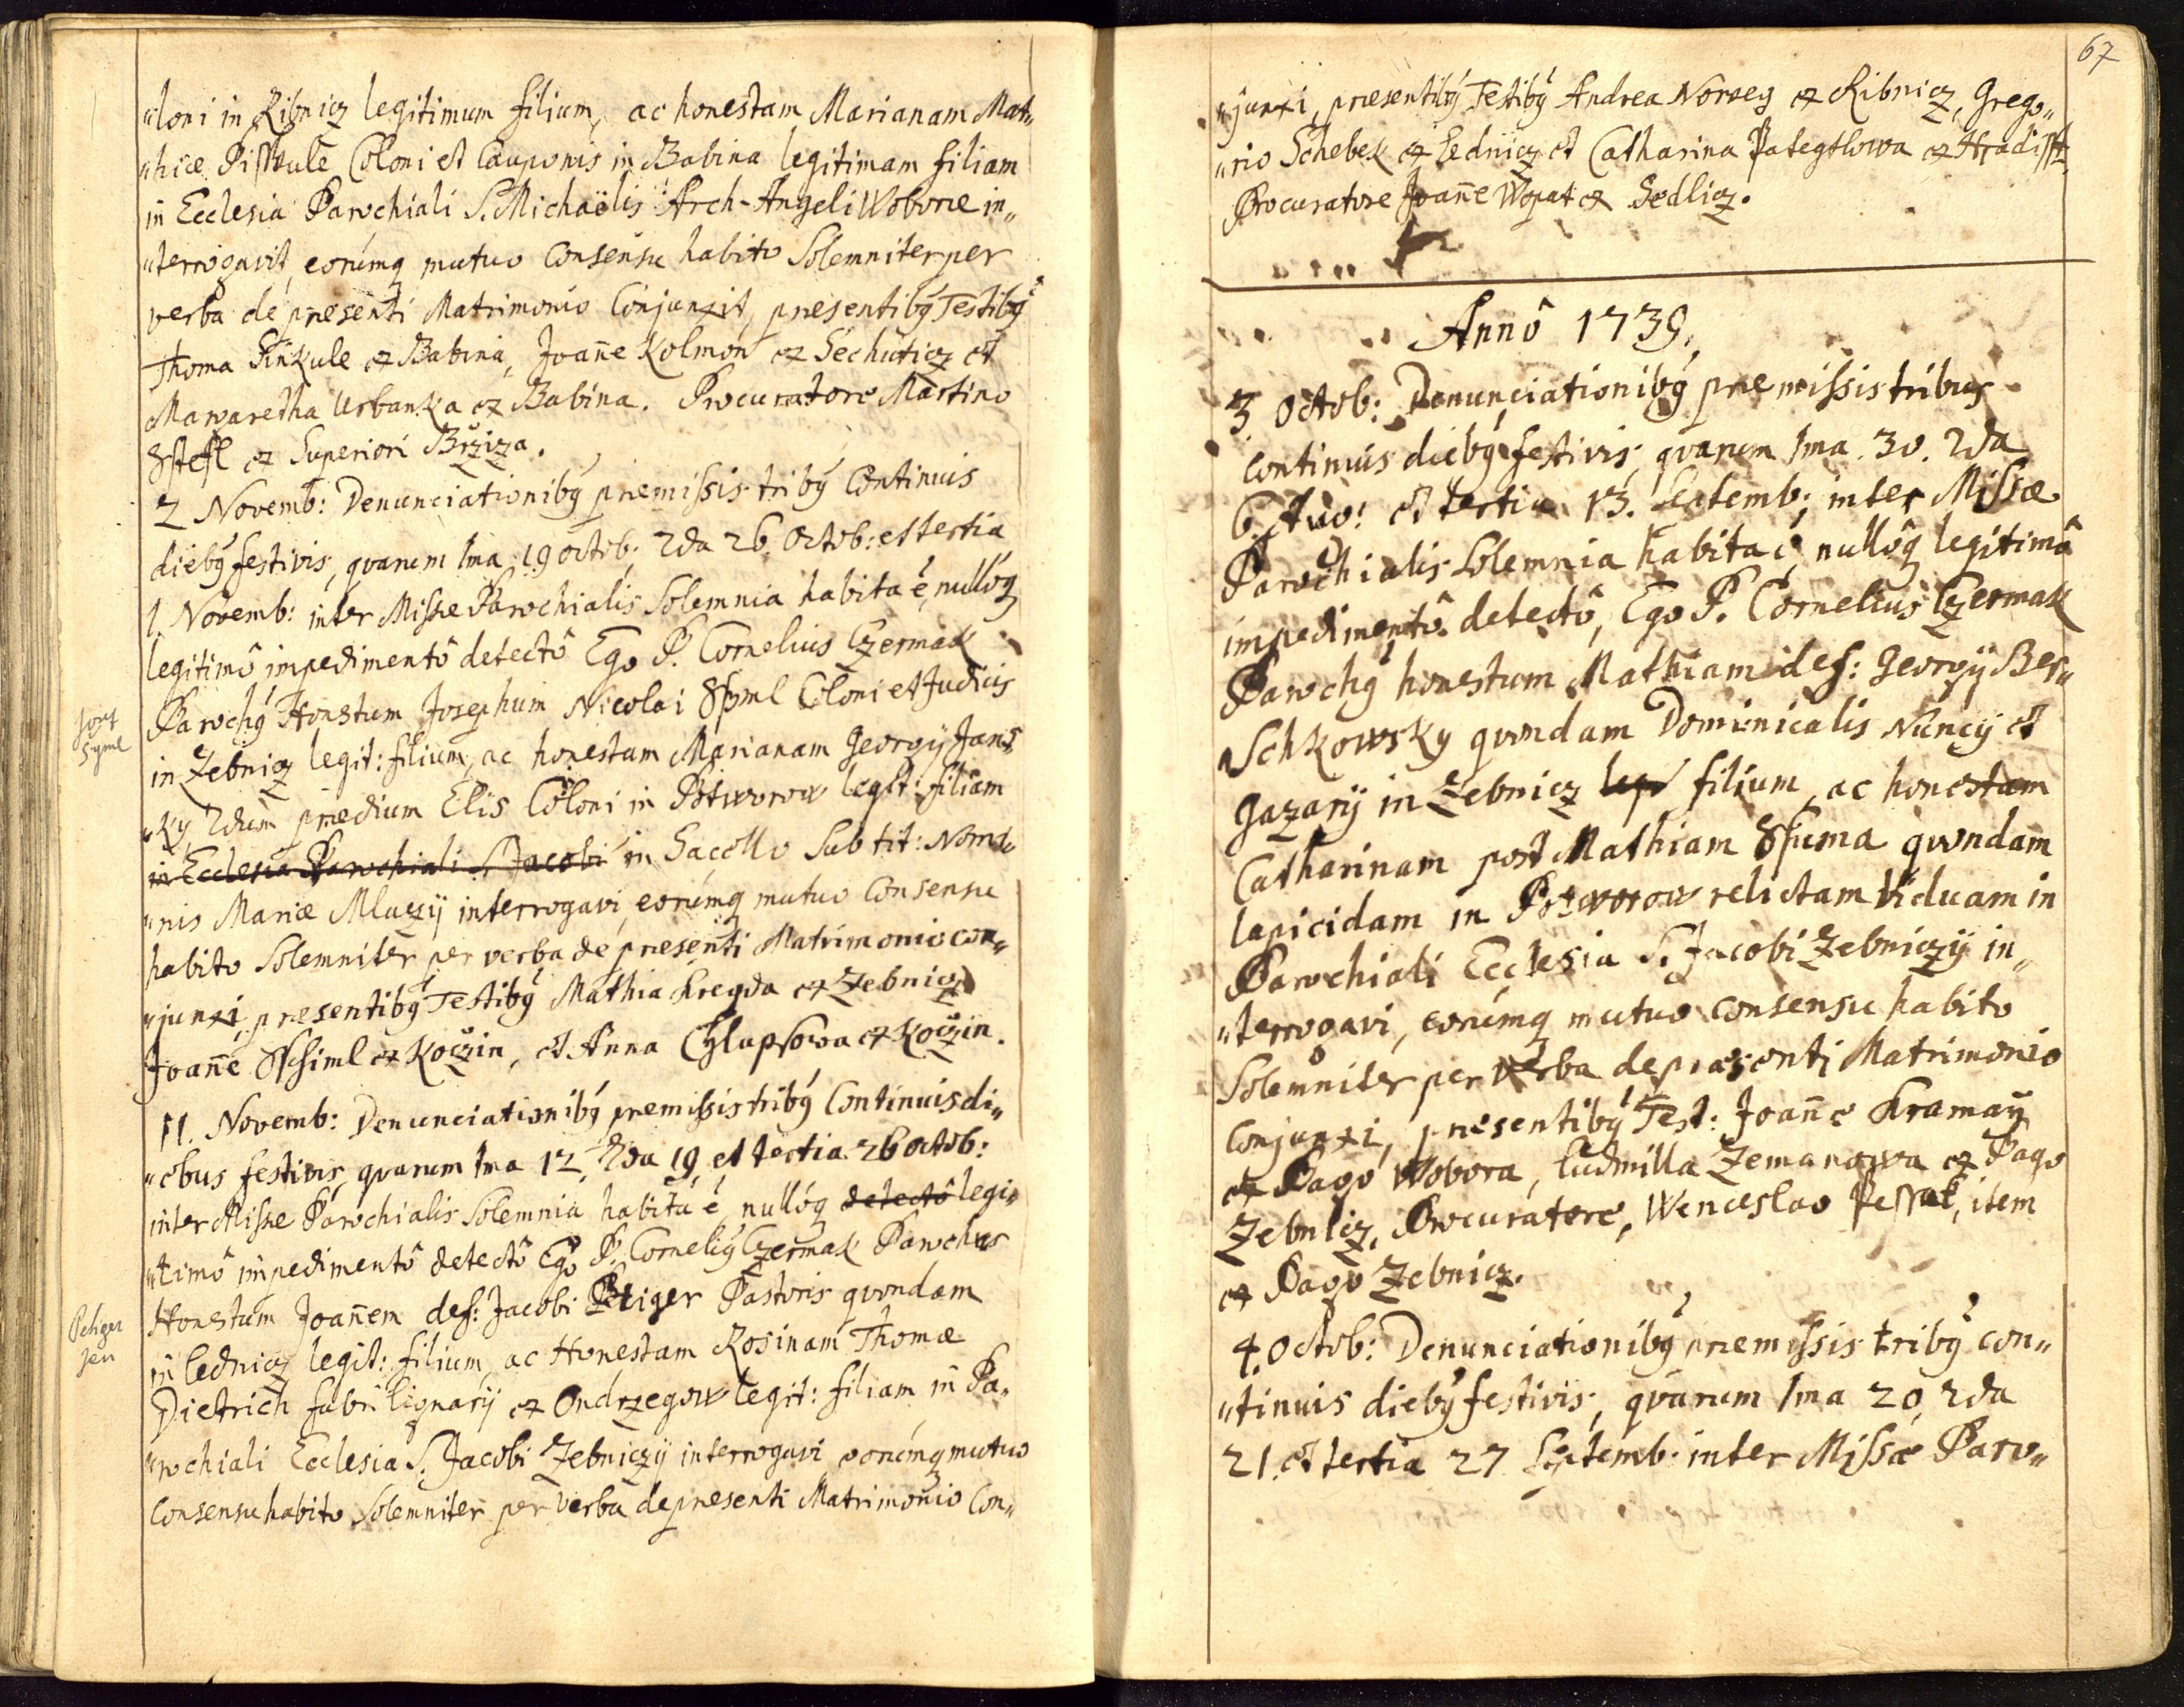 „loni in Ribnicz legitimum filium, ac honestam Marianam Mat„
„hiæ Pisstule Coloni et Cauponis in Babina legitimam filiam
in Ecclesia Parochiali S. Michaëlis Arch-Angeli Woboræ in„
„terrogavit, eorúmq mutuo Consensu habito Solemniter per
verba de præsenti Matrimonio Conjunxit, præsentibꝯ Testibꝯ
Thoma Sinkule ex Babina, Joañe Kolmon ex Sechuticz et
Mararetha Urbanka ex Babina. Procuratore Martino
Sstefl ex Superiori Brziza.
2 Novemb: Denunciationibꝯ præmissis tribꝯ Continuis
diebꝯ festivis, qvarum 1ma 19 octob: 2da 26. Octob: et tertia
1 Novemb: inter Missæ Parochialis Solemnia habita é, nullóq
legitimô impedimentô detectô Ego P. Cornelius Czermak
Parochꝯ Honestum Josephum Nicolai Ssyml Coloni et Judicis
in Zebnicz legit: filium, ac honestam Marianam Georgÿ Jans„
„ky, 2dum prædium Elis Coloni in Potworow legit: filiam
in Ecclesia Parochiali S. Jacobi in Sacello Sub tit: Nomi„
„nis Mariæ Mlaczÿ interrogavi, eorúmq mutuo Consensu
habito Solemniter per verba de præsenti Matrimonio con„
„junxi, præsentibꝯ Testibꝯ Mathia Kregda ex Zebnicz
Joañe Sschiml ex Koczin, et Anna Chlapsowa ex Koczin.
11. Novemb: Denunciationibꝯ præmissis tribꝯ Continuis di„
„ebus festivis, qvarum 1ma 12, 2da 19, et tertia 26 octob:
inter Missæ Parochialis Solemnia habita é, nullóq detectô legi„
„timô impedimentô detectô Ego P. Corneliꝯ Czermak Parochus
Honestum Joañem def: Jacobi Peliger Pastoris qvondam
in Lednicz legit: filium, ac Honestam Rosinam Thomæ
Dietrich fabri lignarÿ ex Ondrzegow legit: filiam in Pa„
„rochiali Ecclesia S. Jacobi Zebniczÿ interrogavi eorúmq mutuo
Consensu habito Solemniter per verba de præsenti Matrimonio Con„
Josef
Syml
Peliger
Jan
67
„junxi, præsentibꝯ Testibꝯ Andrea Norveg ex Ribnicz, Grego„
„rio Schebek ex Lednicz et Catharina Pategtlowa ex Hradisst,
Procuratore Joañe Wopat ex Sedlicz.
Annô 1739,
3 Octob: Denunciationibꝯ præmissis tribus
continuis diebꝯ festivis, qvarum 1ma 30. 2da
et tertia 13. Septemb: inter Missæ
Parochialis Solemnia habita é, nullôq legitimô
impedimentô detectô, Ego P. Cornelius Czermak
Parochꝯ honestum Mathiam def: Georgÿ Ber„
„Schkowsky qvondam Dominicalis Nuncÿ et
Gazarÿ in Zebnicz leg filium, ac honestam
Catharinam post Mathiam Ssuma qvondam
lapicidam in Potworow relictam Viduam in
Parochiali Ecclesia S. Jacobi Zebniczÿ in„
„terrogavi, eorúmq mutuo consensu habito
Solemniter per verba de præsenti Matrimonio
Conjunxi, præsentibꝯ Test: Joañe Kramaÿ
ex Pago Wobora, Ludmilla Zemanowa ex Pago
Zebnicz, Procuratore, Wenceslao Pessak, item
ex Pago Zebnicz.
4. Octob: Denunciationibꝯ præmissis tribꝯ con„
„tinuis diebꝯ festivis, qvarum 1ma 20, 2da
21. et tertia 27 Septemb: inter Missæ Paro„